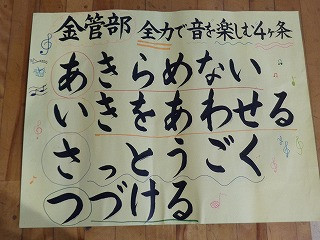 金管部 全力で音を楽しむ4ヶ条
あきらめない
いきをあわせる
さっとうごく
つづける